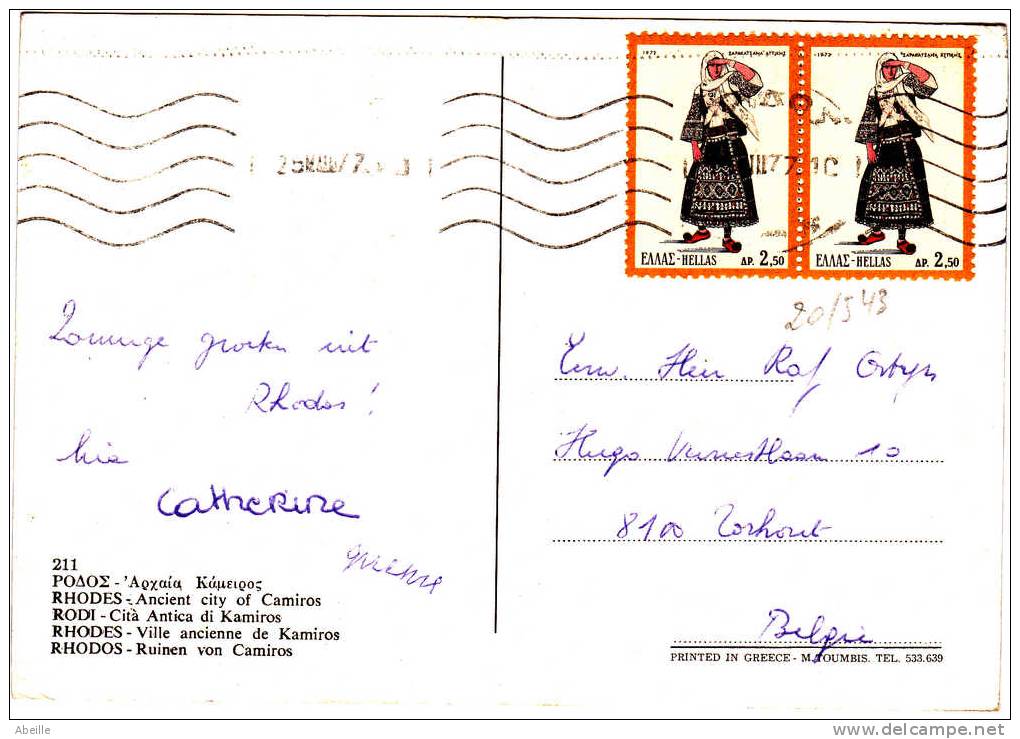 1972 ΣΑΡΑΚΑΤΣΑΝΑ ΑΤΤΙΚΗΣ
1972 ΣΑΡΑΚΑΤΣΑΝΑ ΑΤΤΙΚΗΣ
ΕΛΛΑΣ-HELLAS ΔΡ. 2,50
ΕΛΛΑΣ-HELLAS ΔΡ. 2,50
20/5 43
Zonnige groeten uit
Rhodos!
Mia
Catherine
211
ΡΟΔΟΣ - Ἀρχαία Κάμειρος
RHODES - Ancient city of Camiros
RODI - Cità Antica di Kamiros
RHODES - Ville ancienne de Kamiros
RHODOS - Ruinen von Camiros
Raf
Hugo 10
8100 Torhout
België
PRINTED IN GREECE - M. TOUMBIS. TEL. 533.639
Abeille
www.delcampe.net